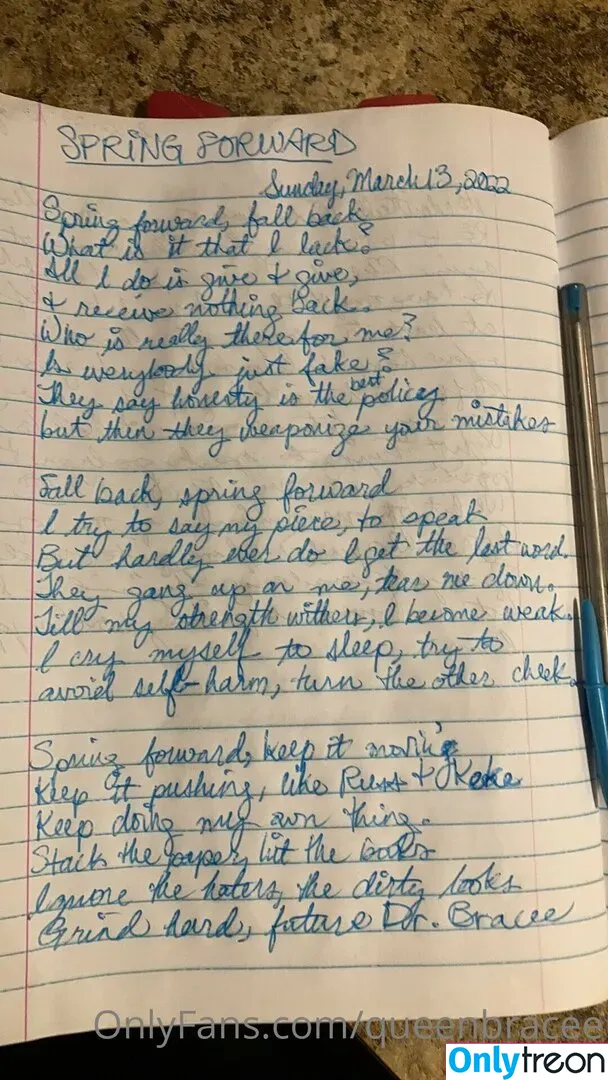 SPRING FORWARD
Sunday, March 13, 2022
Spring forward, fall back
What is it that I lack?
All I do is give & give,
& receive nothing back.
Who is really there for me?
Is everybody just fake?
They say honesty is the best policy
but then they weaponize your mistakes
Fall back, spring forward
I try to say my piece, to speak
But hardly ever do I get the last word.
They gang up on me, tear me down.
Till my strength withers, I become weak.
I cry myself to sleep, try to
avoid self-harm, turn the other cheek.
Spring forward, keep it movin'
Keep it pushing, like Russ & Keke
Keep doing my own thing.
Stack the paper, hit the books
Ignore the haters, the dirty looks
Grind hard, future Dr. Bracee
OnlyFans.com/queenbracee
Onlytreon